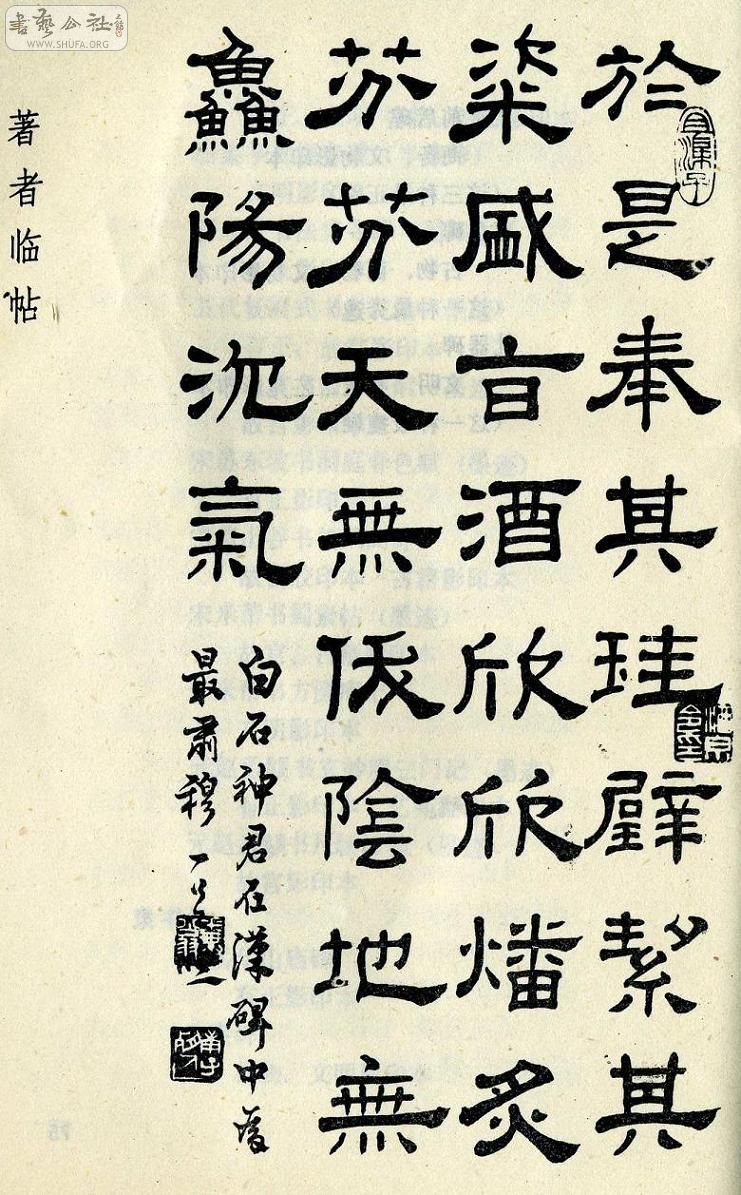 書藝公社
WWW.SHUFA.ORG
於是奉其珪璧絜其
粢盛旨酒欣欣燔炙
芬芬天無伏陰地無
鱻陽沉氣
白石神君在漢碑中為
最肅穆
著者临帖